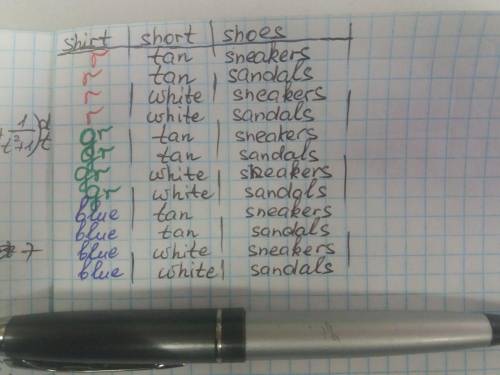 shirt short shoes
r tan sneakers
r tan sandals
r white sneakers
r white sandals
gr tan sneakers
gr tan sandals
gr white sneakers
gr white sandals
blue tan sneakers
blue tan sandals
7 blue white sneakers
blue white sandals